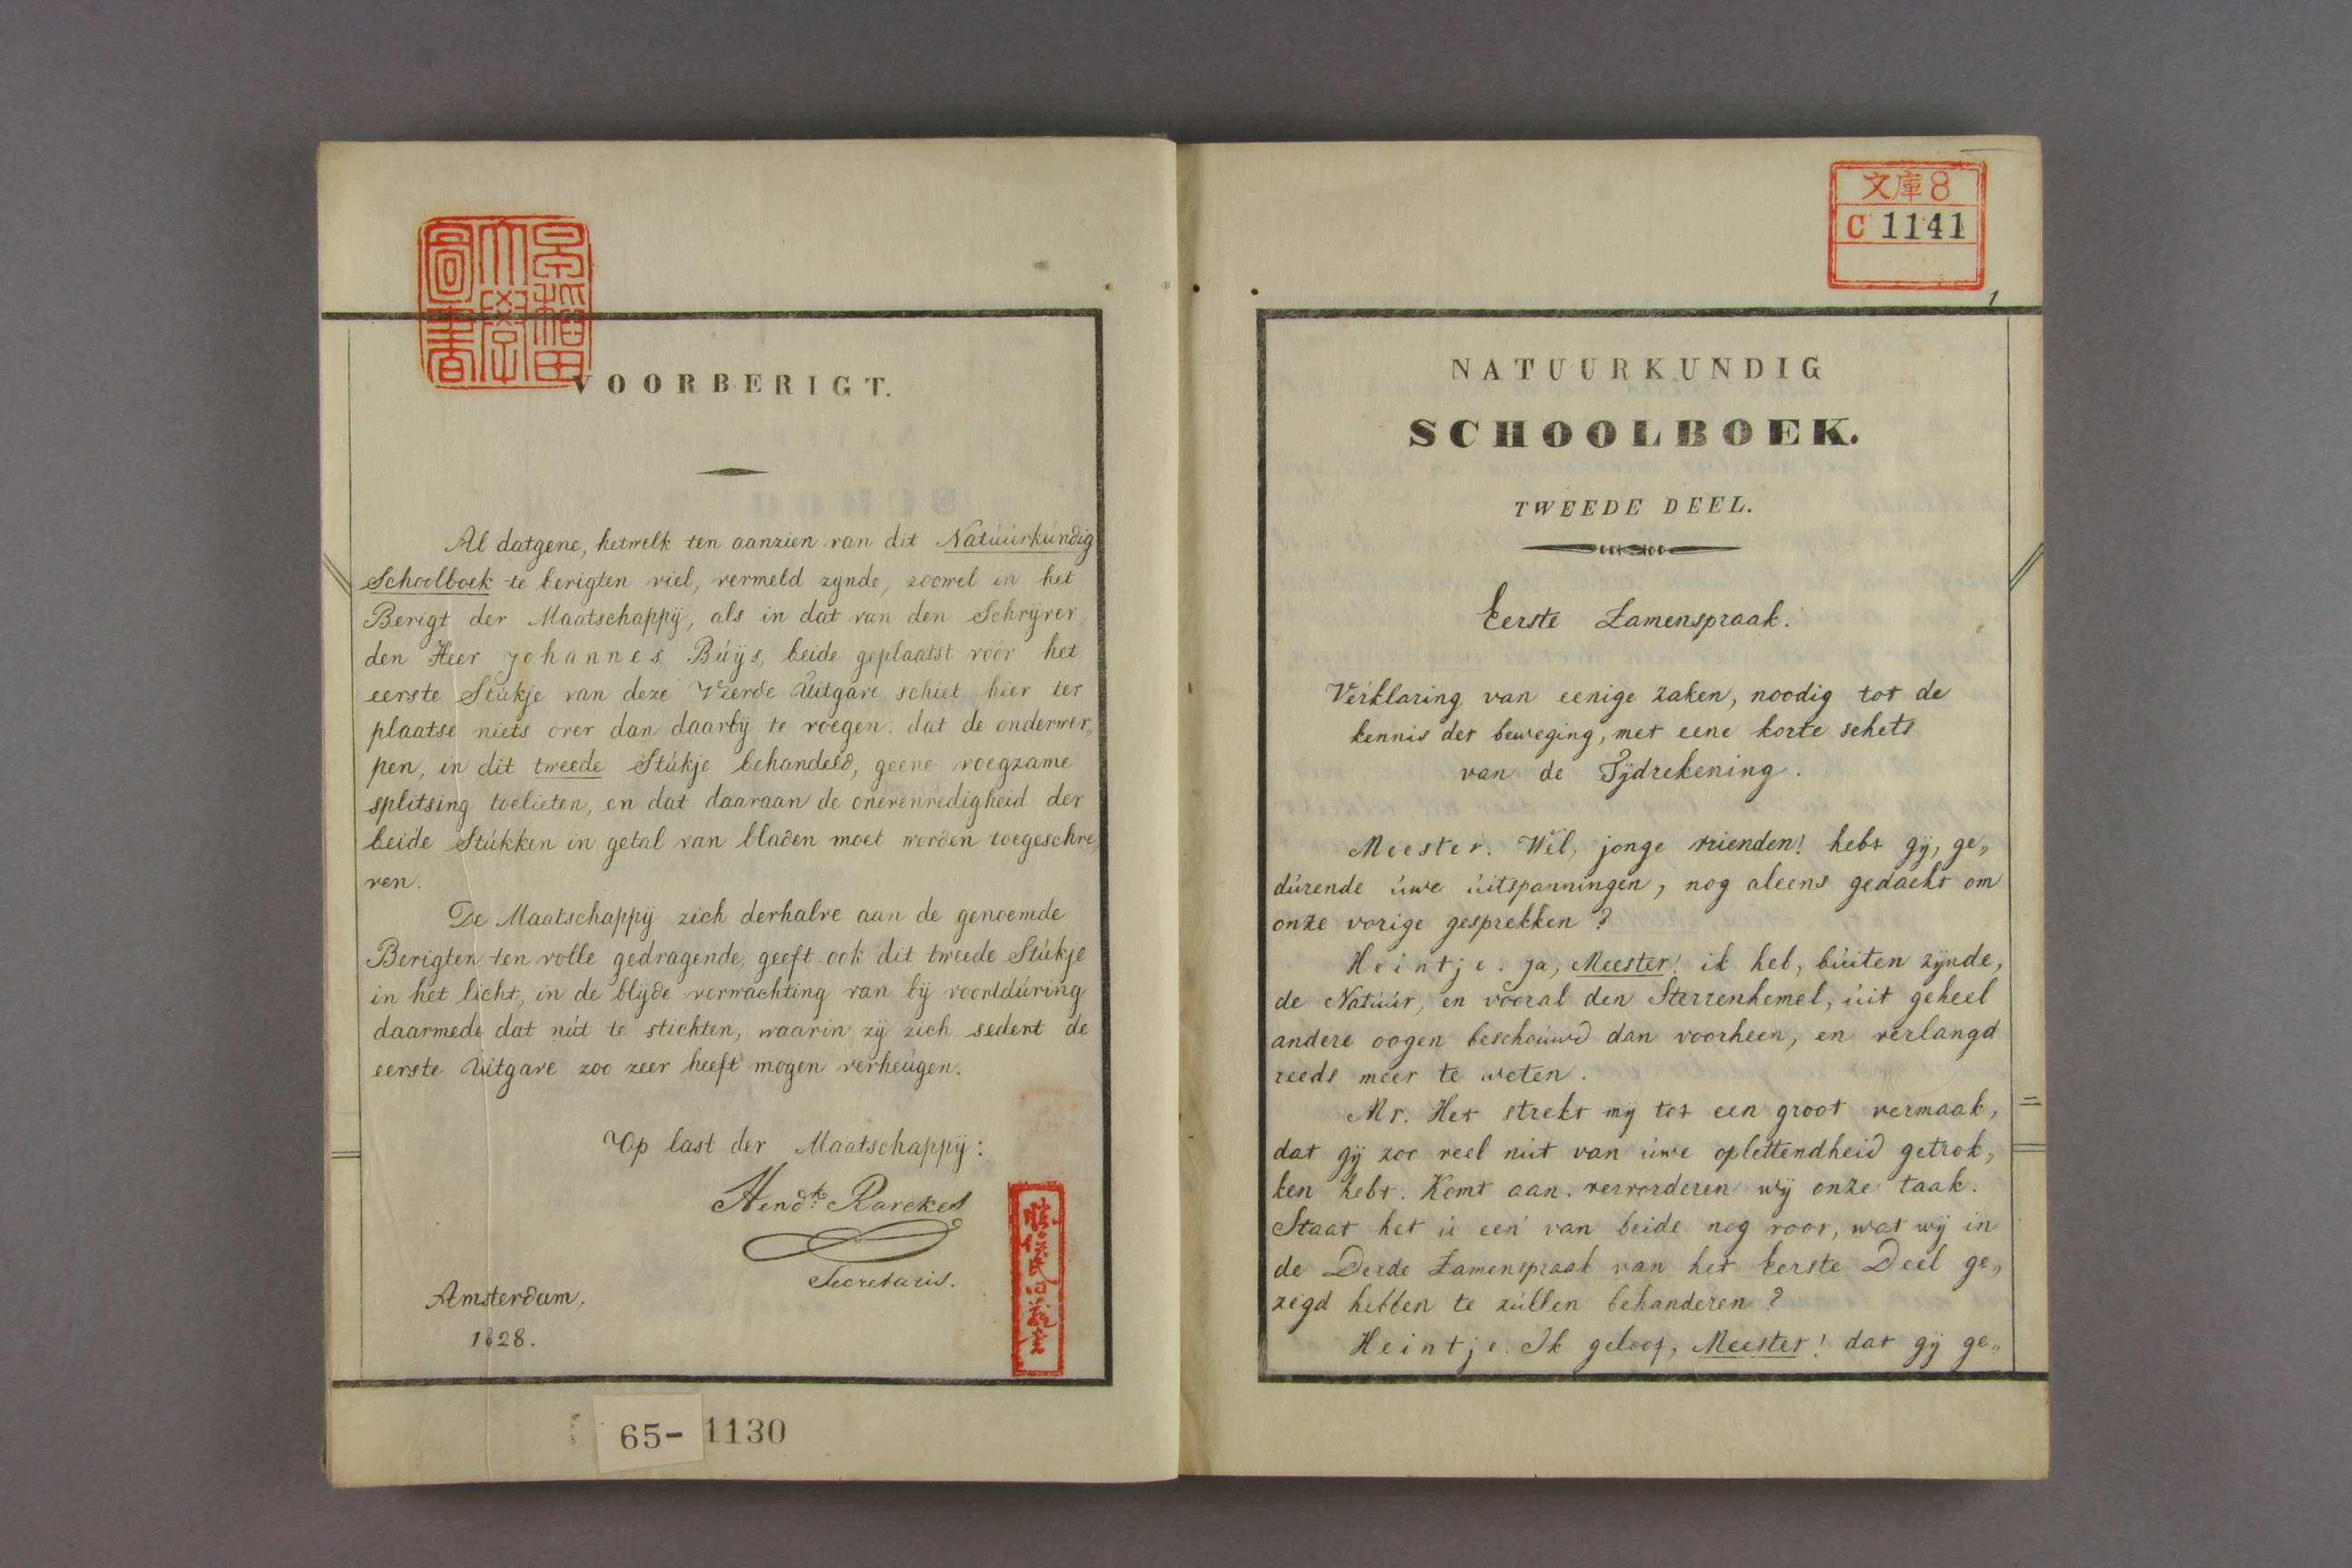 VOORBERIGT.
Al datgene, hetwelk ten aanzien van dit Natúúrkúndig
Schoolboek te berigten viel, vermeld zynde, zoowel in het
Berigt der Maatschappij, als in dat van den Schrijver
den Heer Johannes Búijs, beide geplaatst vóór het
eerste Stúkje van deze Vierde Uitgave schiet hier ter
plaatse niets over dan daarbij te voegen: dat de onderwer„
pen, in dit tweede Stúkje behandeld, geene voegzame
splitsing toelieten, en dat daaraan de onevenredigheid der
beide Stúkken in getal van bladen moet worden toegeschre„
ven.
De Maatschappij zich derhalve aan de genoemde
Berigten ten volle gedragende, geeft ook dit tweede Stúkje
in het licht, in de blijde verwachting van bij voortdúring
daarmede dat nút te stichten, waarin zij zich sedert de
eerste Uitgave zoo zeer heeft mogen verheúgen.
Op last der Maatschappij:
Hendk. Ravekes
Secretaris.
Amsterdam,
1828.
早稲田大學圖書
65-1130
文庫8
C 1141
1
NATUURKUNDIG
SCHOOLBOEK.
TWEEDE DEEL.
Eerste Zamenspraak.
Verklaring van eenige zaken, noodig tot de
kennis der beweging, met eene korte schets
van de Tijdrekening.
Meester. Wel, jonge vrienden! hebt gij, ge„
dúrende úwe úitspanningen, nog aleens gedacht om
onze vorige gesprekken?
Heintje. Ja, Meester! ik heb, búiten zijnde,
de Natúúr, en vooral den Sterrenhemel, úit geheel
andere oogen beschoúwd dan voorheen, en verlangd
reeds meer te weten.
Mr. Het strekt mij tot een groot vermaak,
dat gij zoo veel nút van úwe oplettendheid getrok„
ken hebt. Komt aan. vervorderen wij onze taak.
Staat het ú een van beide nog voor, wat wij in
de Derde Zamenspraak van het Eerste Deel ge„
zegd hebben te zúllen behanderen?
Heintje. Ik geloof, Meester! dat gij ge„